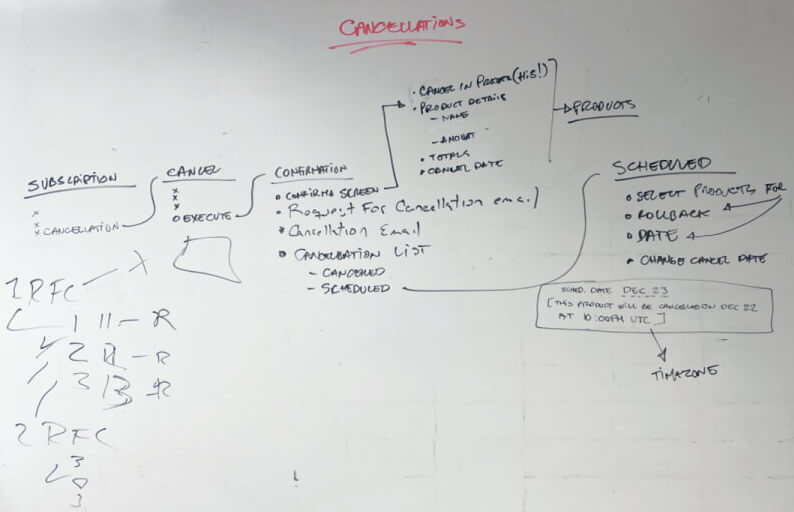 CANCELLATIONS
SUBSCRIPTION
x
x
x CANCELLATION
CANCEL
x
x
x
EXECUTE
CONFIRMATION
• CONFIRM SCREEN
• Request For Cancellation email
• Cancellation Email
• CANCELLATION LIST
- CANCELED
- SCHEDULED
• CANCEL IN (HIS!)
• PRODUCT DETAILS
- NAME
- AMOUNT
• TOTALS
• CANCEL DATE
PRODUCTS
SCHEDULED
• SELECT PRODUCTS FOR
• ROLLBACK
• DATE
• CHANGE CANCEL DATE
SCHED. DATE DEC 23
[THIS PRODUCT WILL BE CANCELLED ON DEC 22
AT 10:00PM UTC]
TIMAZONE
RFC
X
1 11 - R
2 - R
3 13 - R
2 RFC
3
3